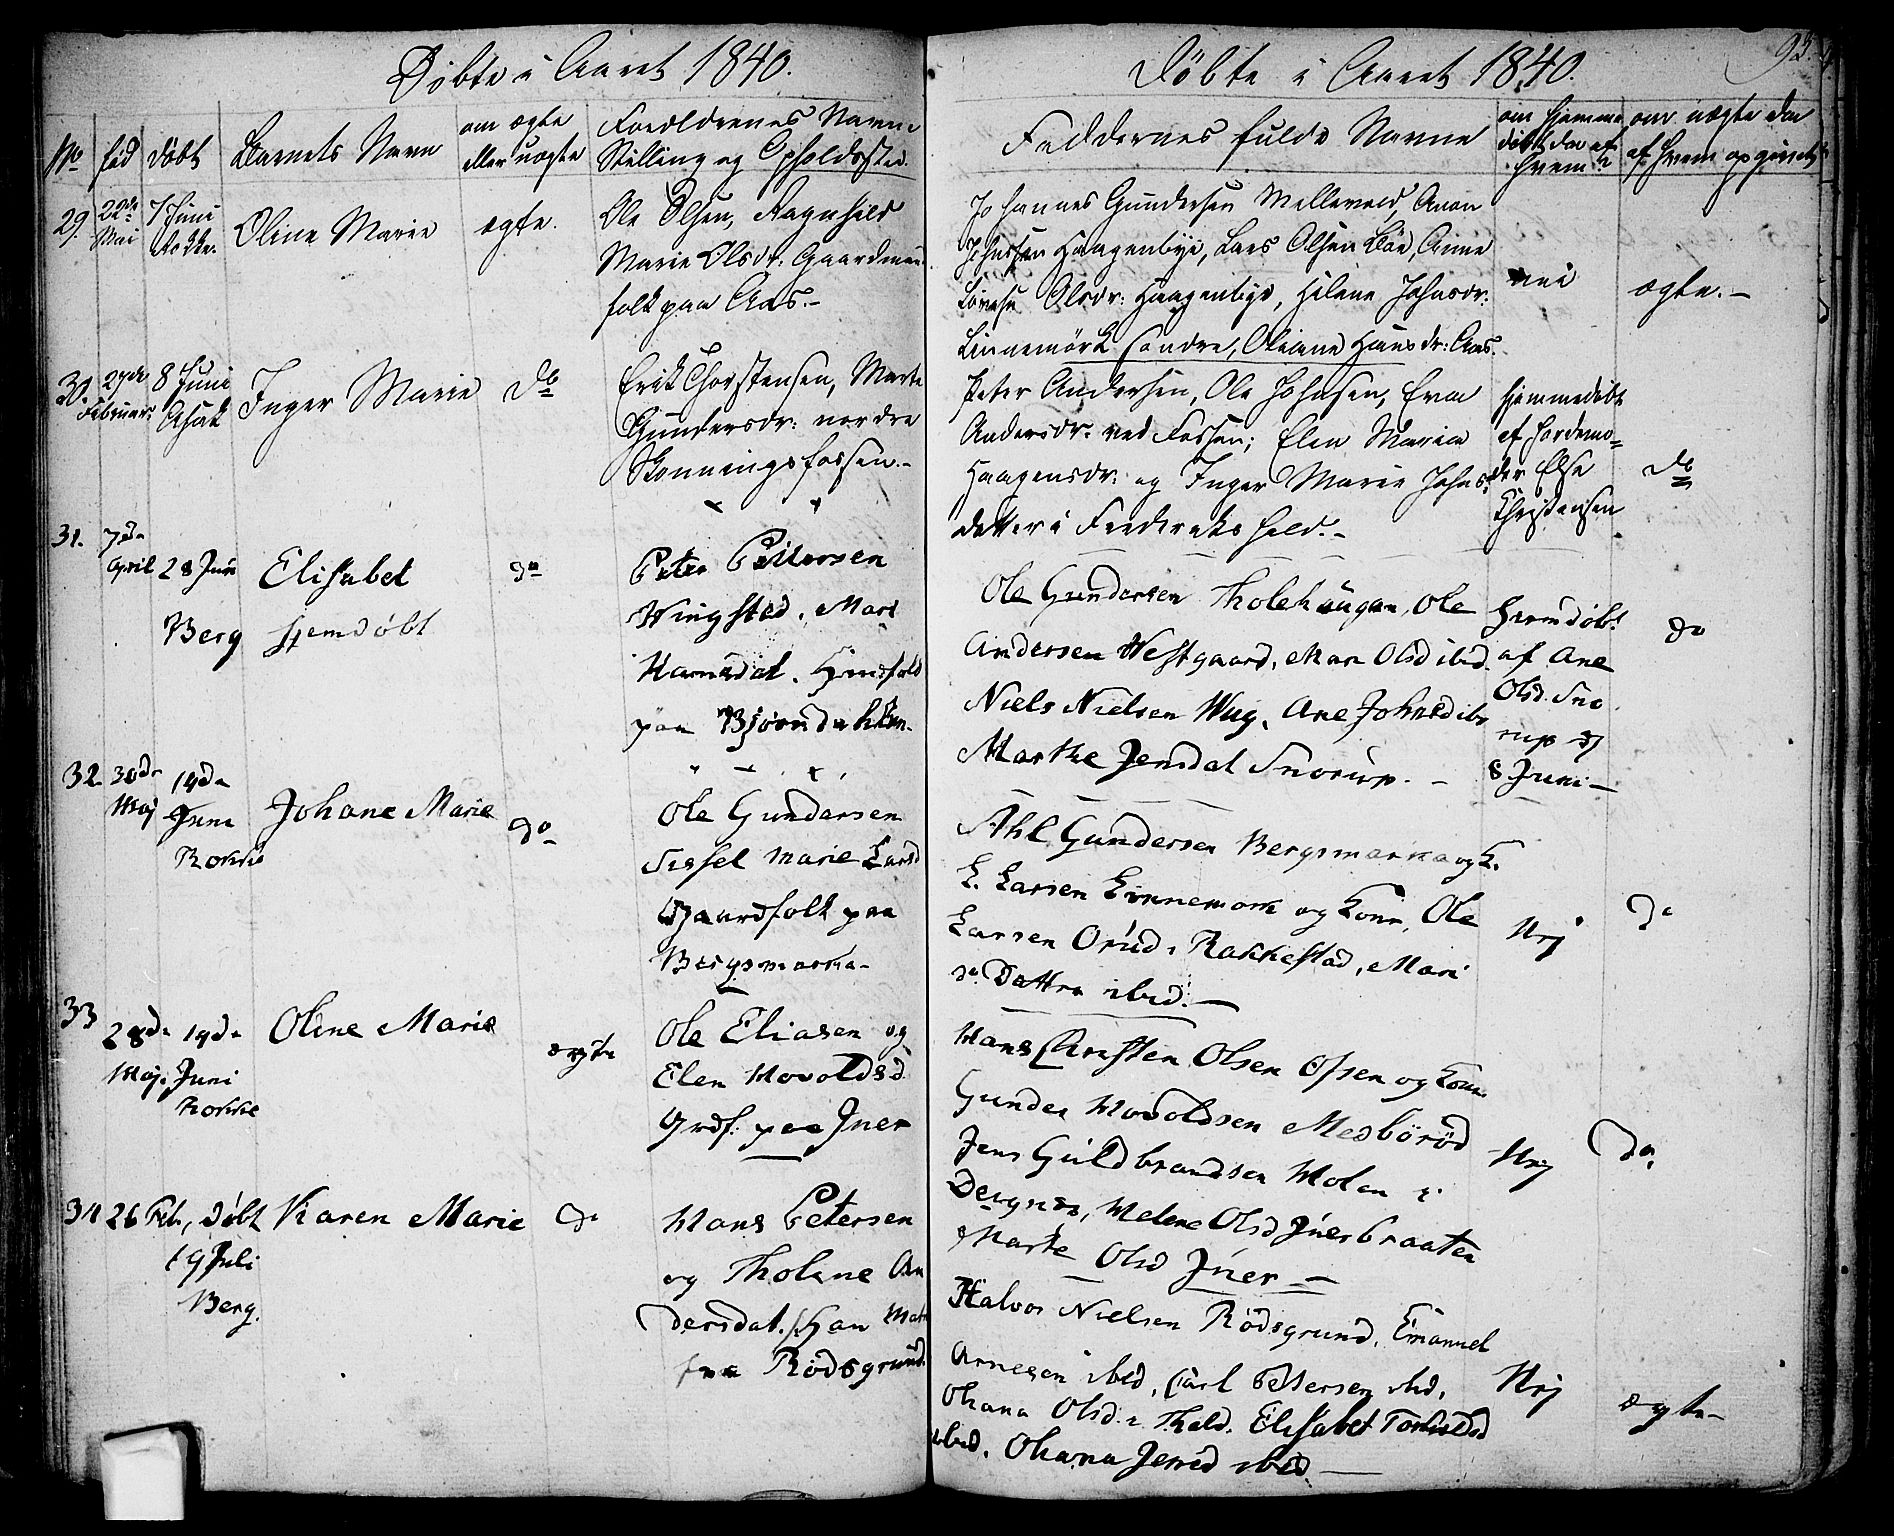 Döbte i Aaret 1840.
No
fød
döbt
Barnets Navn
om ægte
eller uægte
Forældrenes Navne
Stilling og Opholdssted.
29.
22de
Mai
7 Juni
Rokke.
Oline Marie
ægte.
Ole Olsen, Ragnhild
Marie Olsdr: Gaardmand
folk paa Aas.-
30.
27de
Februar
8 Juni
Asak
Inger Marie
do
Erik Thorstensen, Marte
Gundersdr: nordre
Skonningsfossen.-
31.
7de
April
28 Jun
Berg
Elisabet
hjemdöbt
do
Peter Pettersen
Wingsted, Mari
Hansdat.
paa
32.
30de
Maj
14de
Juni
Rokke
Johane Marie
do
Ole Gundersen
Sissel Marie Larsd
Gaardfolk paa
Bergsmarka-
33
28de
Maj.
14de
Juni
Rokke
Oline Marie
ægte
Ole Eliasen og
Elen Hovoldsd
Grdf: paa Jner
34
26 Feb,
döbt
19 Juli
Berg.
Karen Marie
do
Hans Petersen
og Tholine An
dersdat.
fra Rödsgrund.
Döbte i Aaret 1840.
93.
Faddernes fulde Navne
om hjemme
döbt da af
hvem?
om uægte da
af hvem opgivet
Johannes Gundersen
Haagenbye, Lars Olsen Böe, Anne
Olsdr: Haagenbye, Helene Johnsdr:
Linnemörk söndre, Oliane Hansdr: Aas.
nei
ægte.-
Peter Andersen, Ole Johnsen, Eva
Andersdr: ved Fossen; Elen Maria
Haagensdr: og Inger Marie Johns
datter i Frederikshald.-
hjemmedöbt
af Jordemo=
der Else
Christensen
do
Ole Gundersen Tholehaugen, Ole
Andersen Westgaard, Mari Olsd ibid.
Niels Nielsen Wug, Ane Johnsd ib
Marthe Jensdat Snorup. -
hjemdöbt
af Ane
Olsd. Sno
rup d
8 Juni-
do
Ahl Gundersen Bergsmarka og K.
L. Larsen Linnemork og Kone, Ole
Larsen Örud i Rakkestad, Mari
do. Dattra ibid.-
Nej
do
Hans Christen Olsen Ossen og Kone
Gunder Hovoldsen Medbörød
Jens Guldbrandsen Holen i
Degnes, Helene Olsd Jnerbraaten
Marte Olsd Jner-
Nej
do
Halvor Nielsen Rödsgrund, Emanuel
Arnesen ibid, Carl Pettersen ibid,
Ohana Olsd. Elisabet
ibid. Ohana Jensd ibid.-
Nej
ægte-